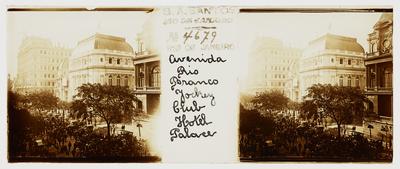 S. A. SANTOS
RIO DE JANEIRO
No 4679
RIO DE JANEIRO
Avenida
Rio
Branco
Jockey
Club
Hotel
Palace